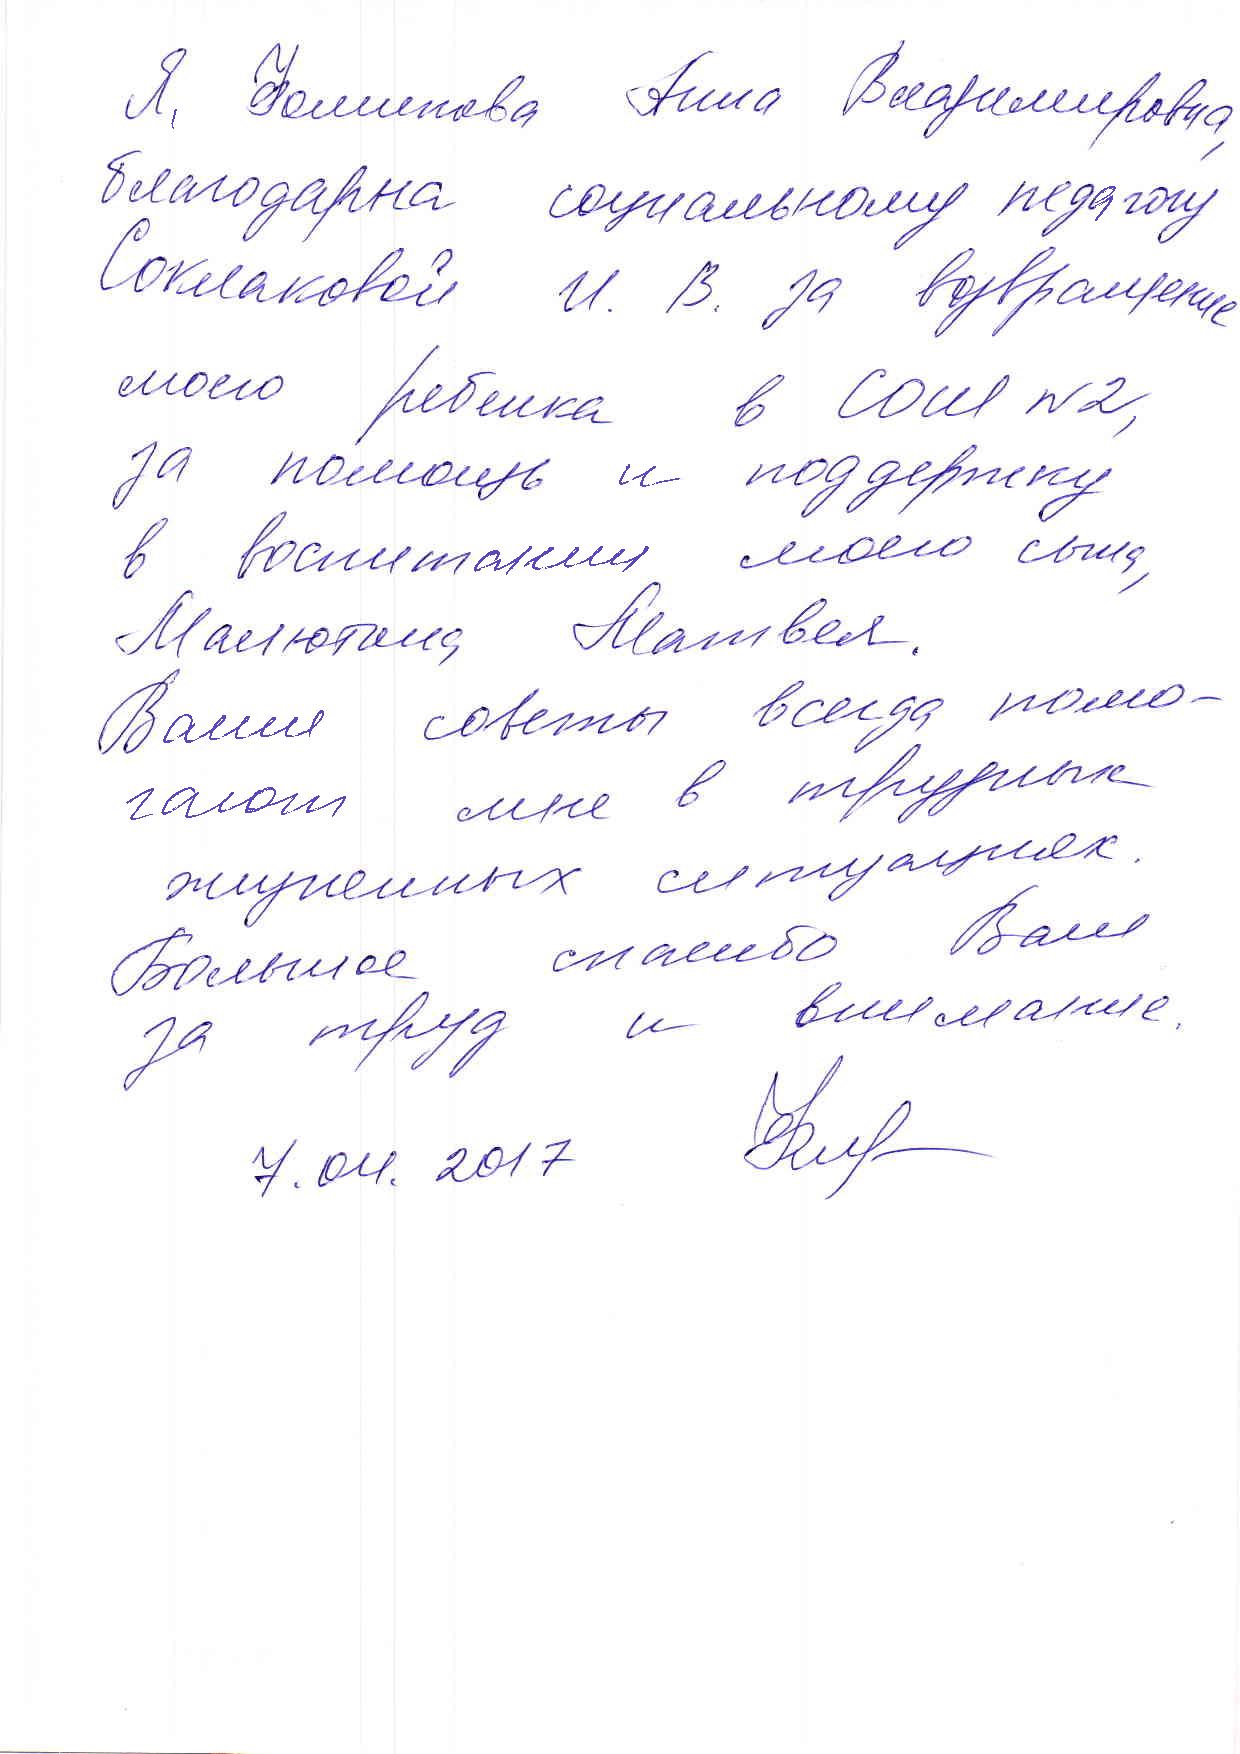 Я, Анна Владимировна,
благодарна социальному педагогу
Соклаковой И. В. за возвращение
моего ребенка в СОШ №2,
за помощь и поддержку
в воспитании моего сына,
Малютина Матвея.
Ваши советы всегда помо-
гают мне в трудных
жизненных ситуациях.
Большое спасибо Вам
за труд и внимание.
7.04.2017